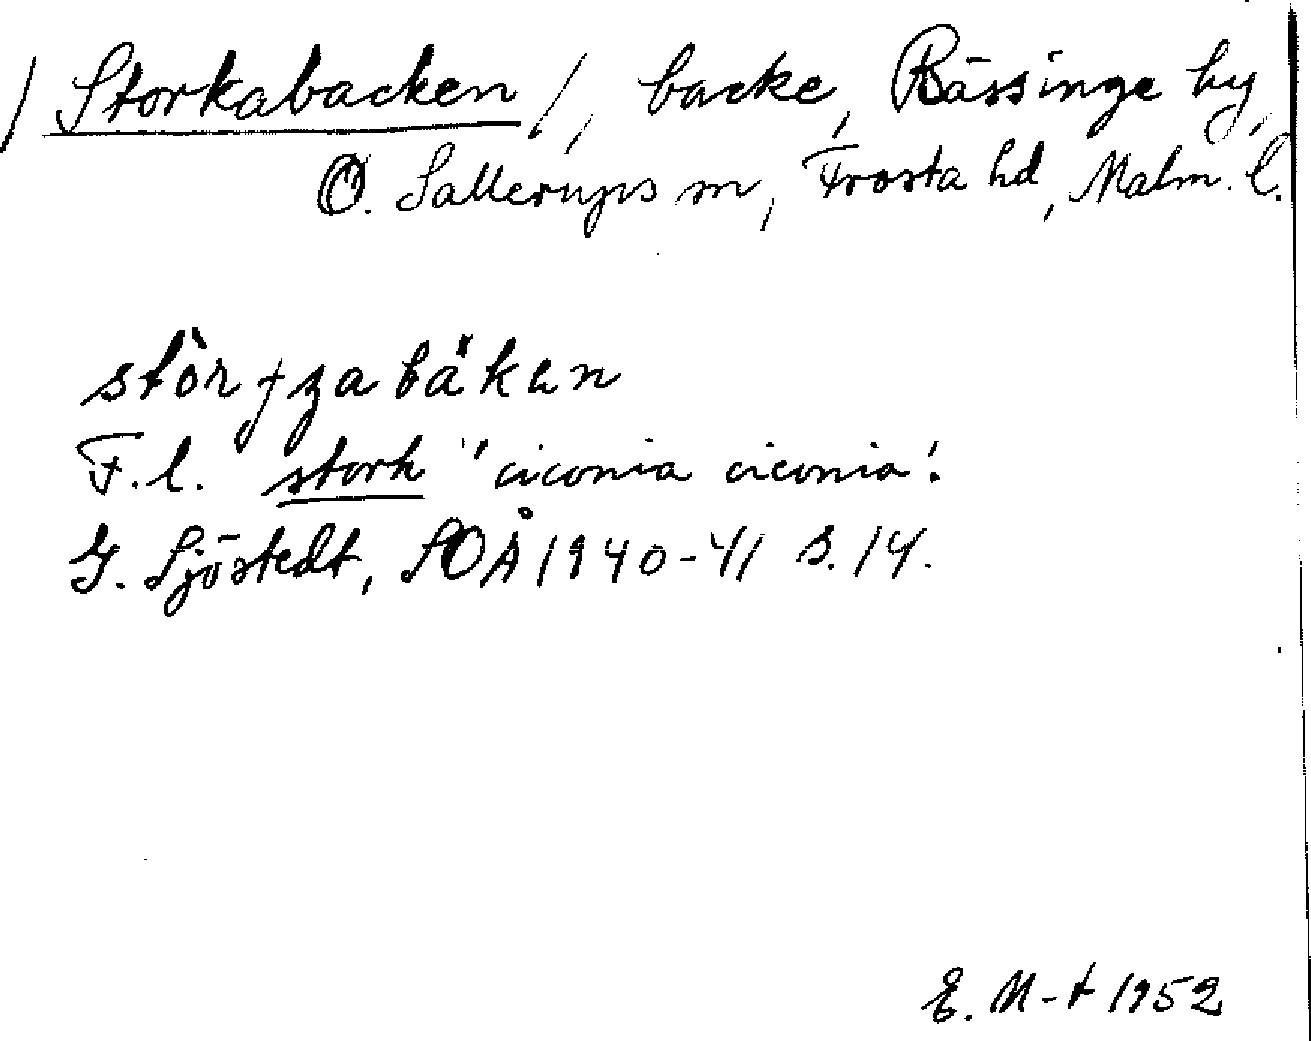 / Storkabacken /, backe, Bässinge by,
Ö. Sallerups sn, Frosta hd, Malm. l.
F.l. stork 'ciconia ciconia'.
G. Sjöstedt, SOÅ 1940-41 s. 14.
E. M-t 1952